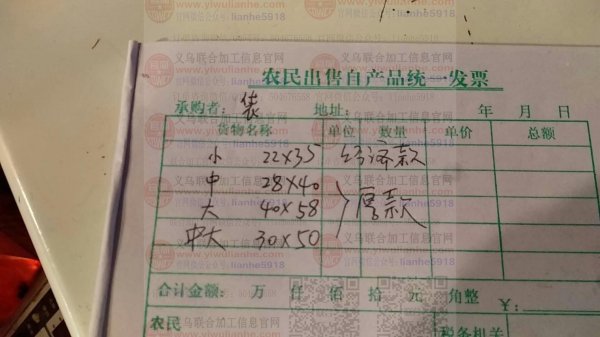 农民出售自产品统一发票
承购者: 袋 地址: 年 月 日
货物名称 单位 数量 单价 总额
小 22×35 经济款
中 28×40
大 40×58 厚款
中大 30×50
合计金额: 万 仟 佰 拾 元 角整 ¥:
农民 税务机关
义乌联合加工信息官网
www.yiwulianhe.com
官网微信公众号: lianhe5918